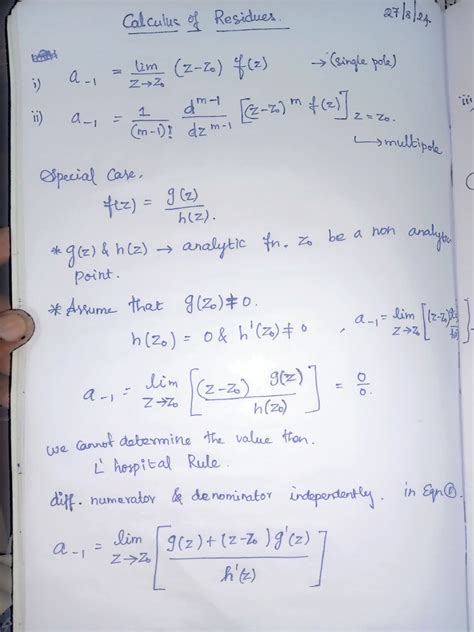 Calculus of Residues.
27/8/24.
i) a₋₁ = lim z→z₀ (z-z₀) f(z) → (single pole)
ii) a₋₁ = 1/(m-1)! d^(m-1)/dz^(m-1) [(z-z₀)^m f(z)] z=z₀.
↳ multipole
Special Case,
f(z) = g(z)/h(z).
* g(z) & h(z) → analytic fn. z₀ be a non analytic
point.
* Assume that g(z₀) ≠ 0.
h(z₀) = 0 & h'(z₀) ≠ 0 , a₋₁ = lim z→z₀
a₋₁ = lim z→z₀ [(z-z₀) g(z)/h(z₀)] = 0/0.
we cannot determine the value then.
L' hospital Rule.
diff. numerator & denominator independently. in Eqn ①.
a₋₁ = lim z→z₀ [(g(z)+(z-z₀)g'(z))/h'(z)]